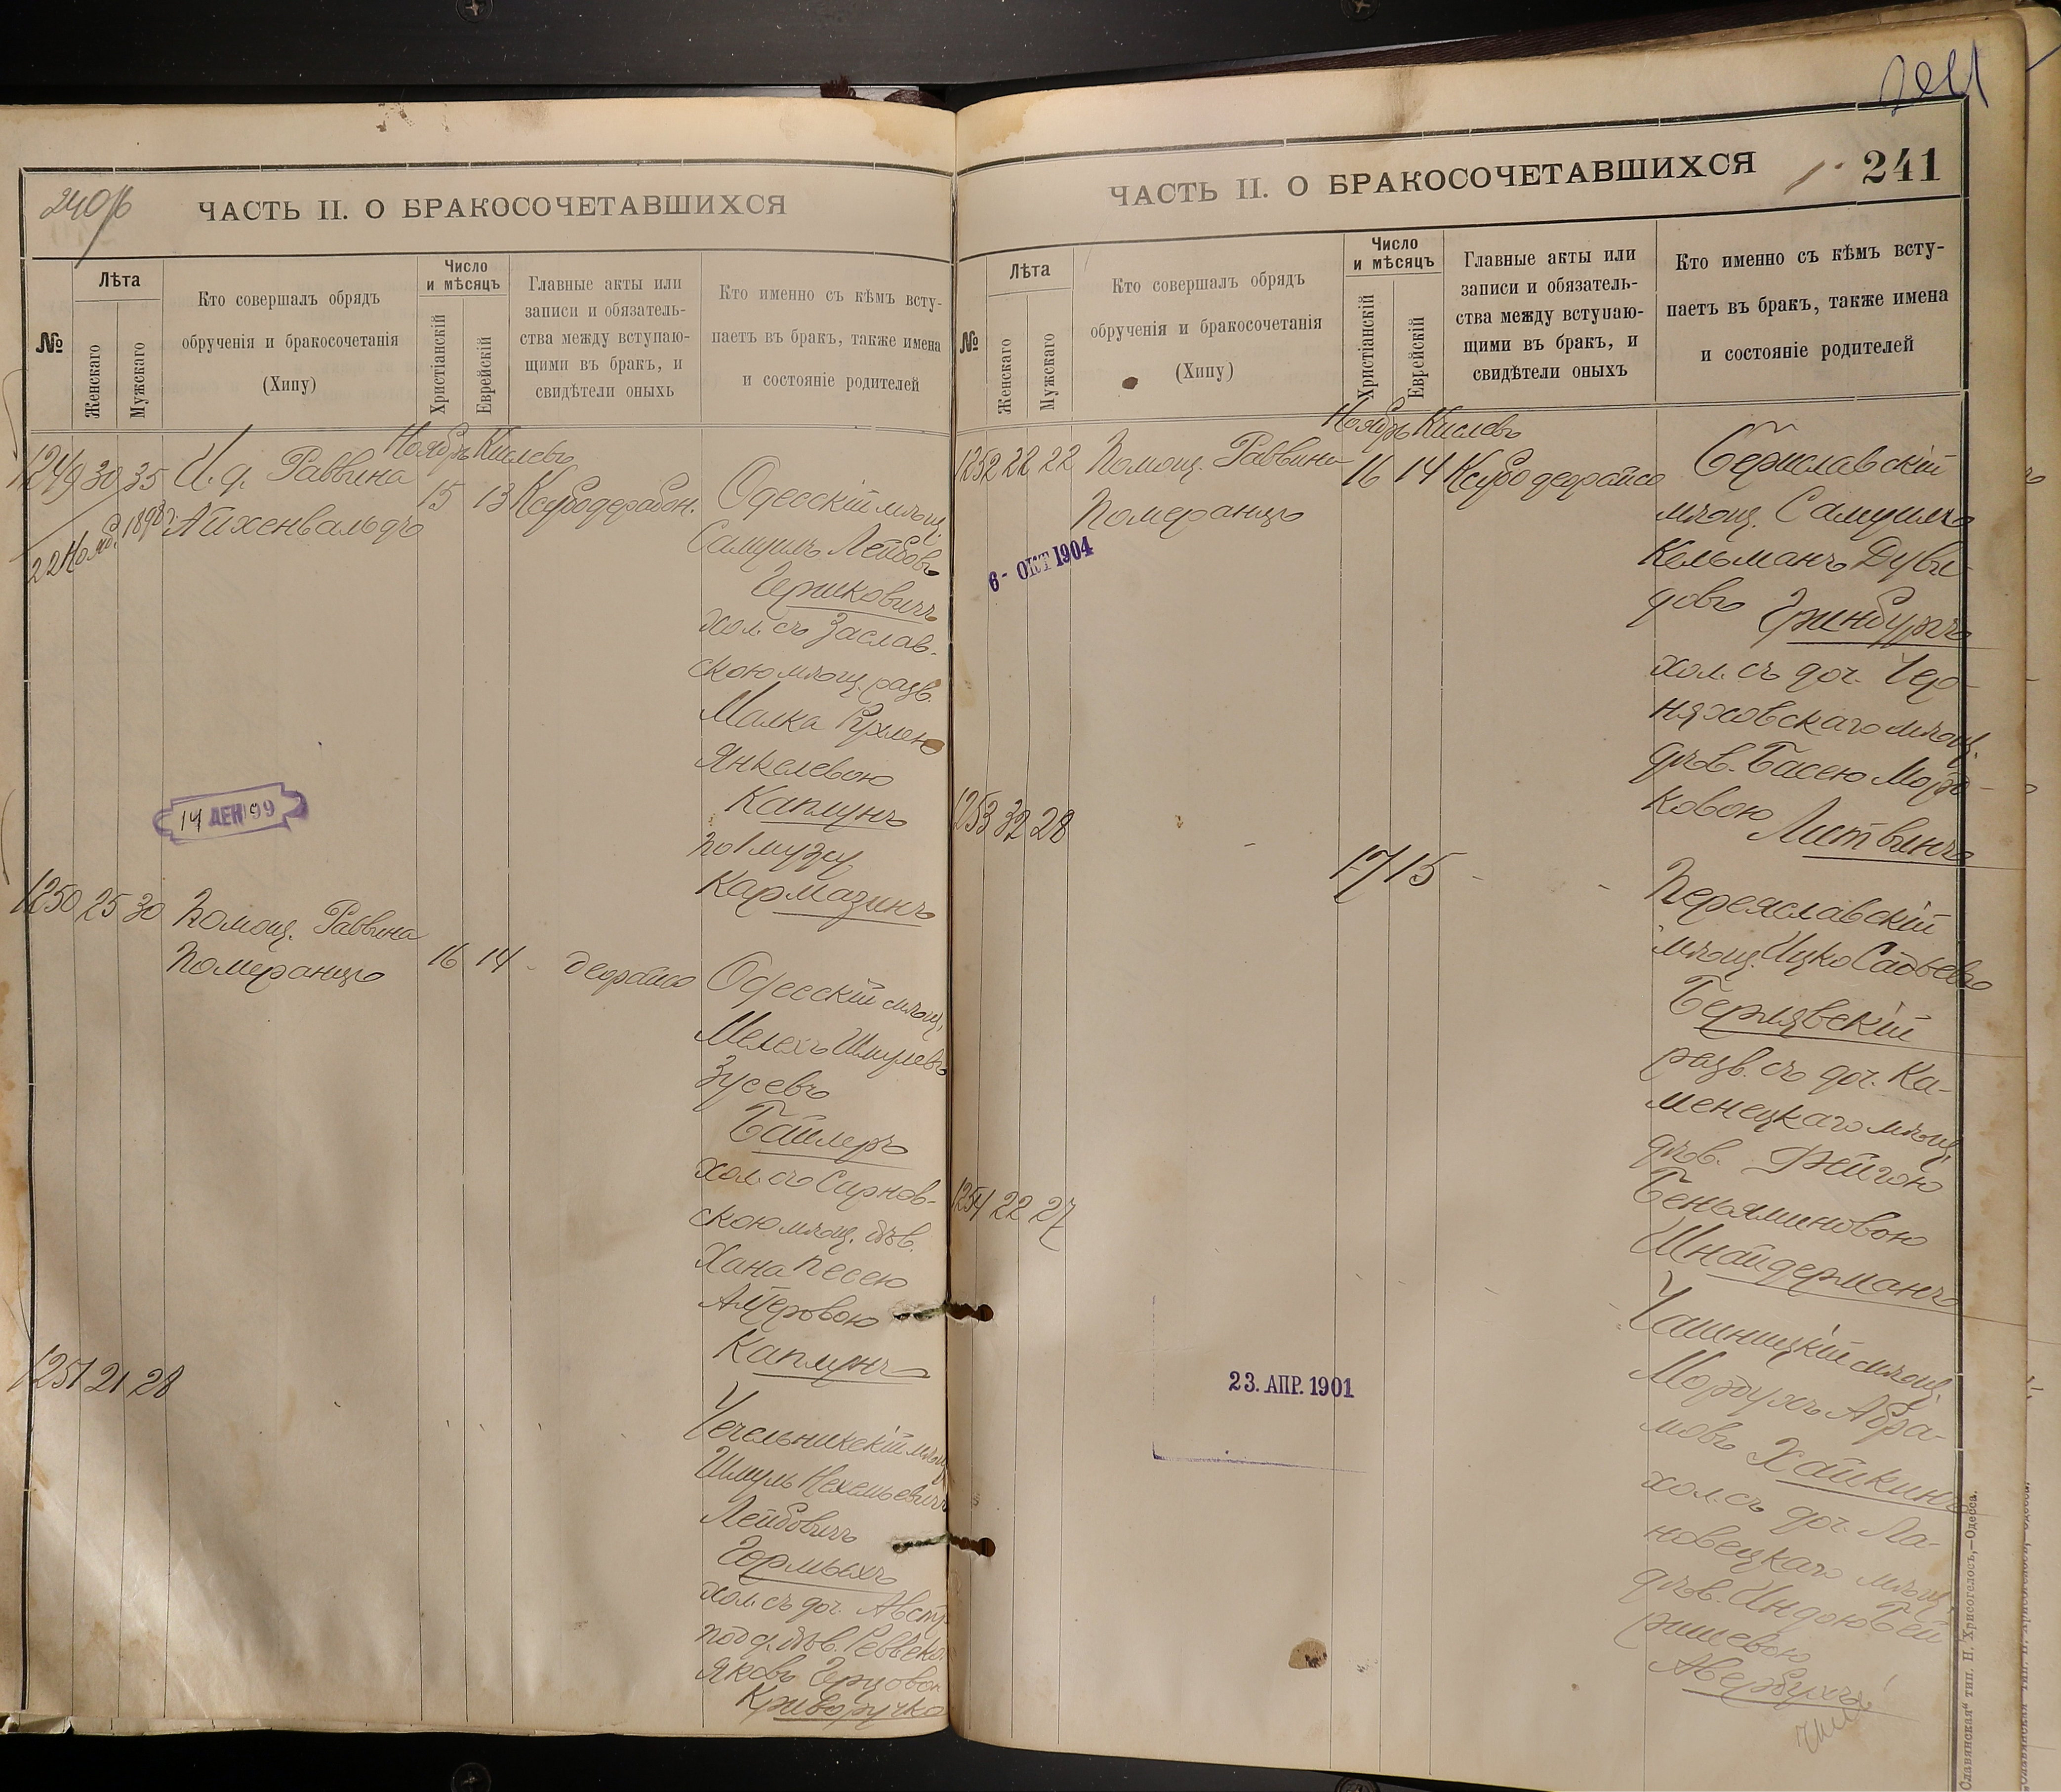 240/б
ЧАСТЬ II. О БРАКОСОЧЕТАВШИХСЯ
№
Лѣта
Женскаго
Мужскаго
Кто совершалъ обрядъ
обрученія и бракосочетанія
(Хипу)
Число
и мѣсяцъ
Христіанскій
Еврейскій
Главные акты или
записи и обязатель-
ства между вступаю-
щими въ бракъ, и
свидѣтели оныхъ
Кто именно съ кѣмъ всту-
паетъ въ бракъ, также имена
и состояніе родителей
Ноябрь Кислевъ
1249 30 35 И. д. Раввина
Айхенвальдъ
15 13
Одесскій мѣщ.
Самуилъ Лейбовъ
Гершковичъ
хол. съ Заслав-
скою мѣщ. разв.
Малка Рухлею
Янкелевою
Каплунъ
по 1 мужу
Кармазинъ
14 ДЕК 99
1250 25 30 Помощ. Раввина
Померанцъ
16 14
Одесскій мѣщ.
Мелехъ Шмулевъ
Зусевъ
Байлеръ
хол. съ Сарнов-
скою мѣщ. дѣв.
Хана Песею
Каплунъ
1251 21 28
Чечельникскій мѣщ
Шмуль Нехемьевичъ
Лейбовичъ
хол. съ доч. Австр.
под. дѣв.
Криворучко
241
ЧАСТЬ II. О БРАКОСОЧЕТАВШИХСЯ
241
№
Лѣта
Женскаго
Мужскаго
Кто совершалъ обрядъ
обрученія и бракосочетанія
(Хипу)
Число
и мѣсяцъ
Христіанскій
Еврейскій
Главные акты или
записи и обязатель-
ства между вступаю-
щими въ бракъ, и
свидѣтели оныхъ
Кто именно съ кѣмъ всту-
паетъ въ бракъ, также имена
и состояніе родителей
Ноябрь Кислевъ
1252 22 22 Помощ. Раввина
Померанцъ
16 14
6 - ОКТ 1904
Бериславскій
мѣщ. Самуилъ
Кельманъ Дуви-
довъ Гринбургъ
хол. съ доч. Чер-
няховскаго мѣщ.
дѣв. Басею Морд-
ковою Литвинъ
1253 32 28
17 15
Переяславскій
мѣщ. Ицко Садьевъ
Берлявскій
разв. съ доч. Ка-
менецкаго мѣщ.
дѣв. Фейгою
Беньяминовою
Шнайдерманъ
1254 22 27
23. АПР. 1901
Чашницкій мѣщ.
Мордухъ Абра-
мовъ Хайкинъ
хол. съ доч. Ла-
новецкаго мѣщ.
дѣв. Индою Бей-
ришевою
Авербухъ
„Славянская“ тип. Н. Хрисогелосъ,—Одесса.